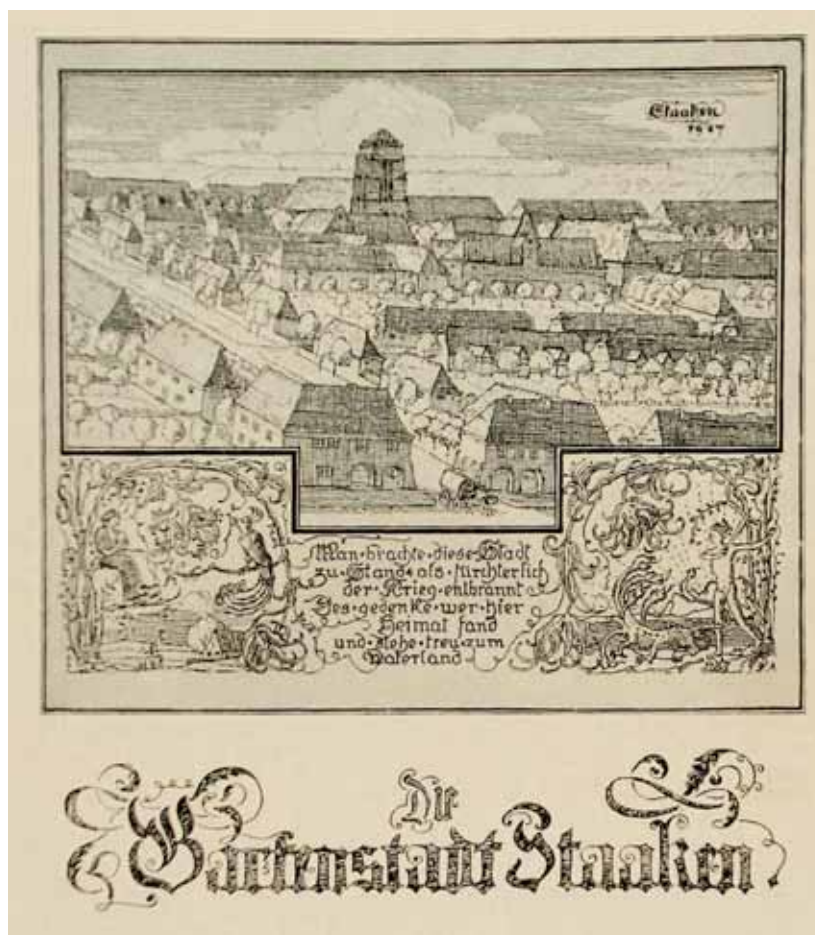 Staaken
1917
Man·brachte·diese·Stadt
zu·Stand·als·fürchterlich
der·Krieg·entbrannt
Des·gedenke·wer·hier
Heimat fand
und·stehe·treu·zum
Vaterland
Die
Gartenstadt Staaken